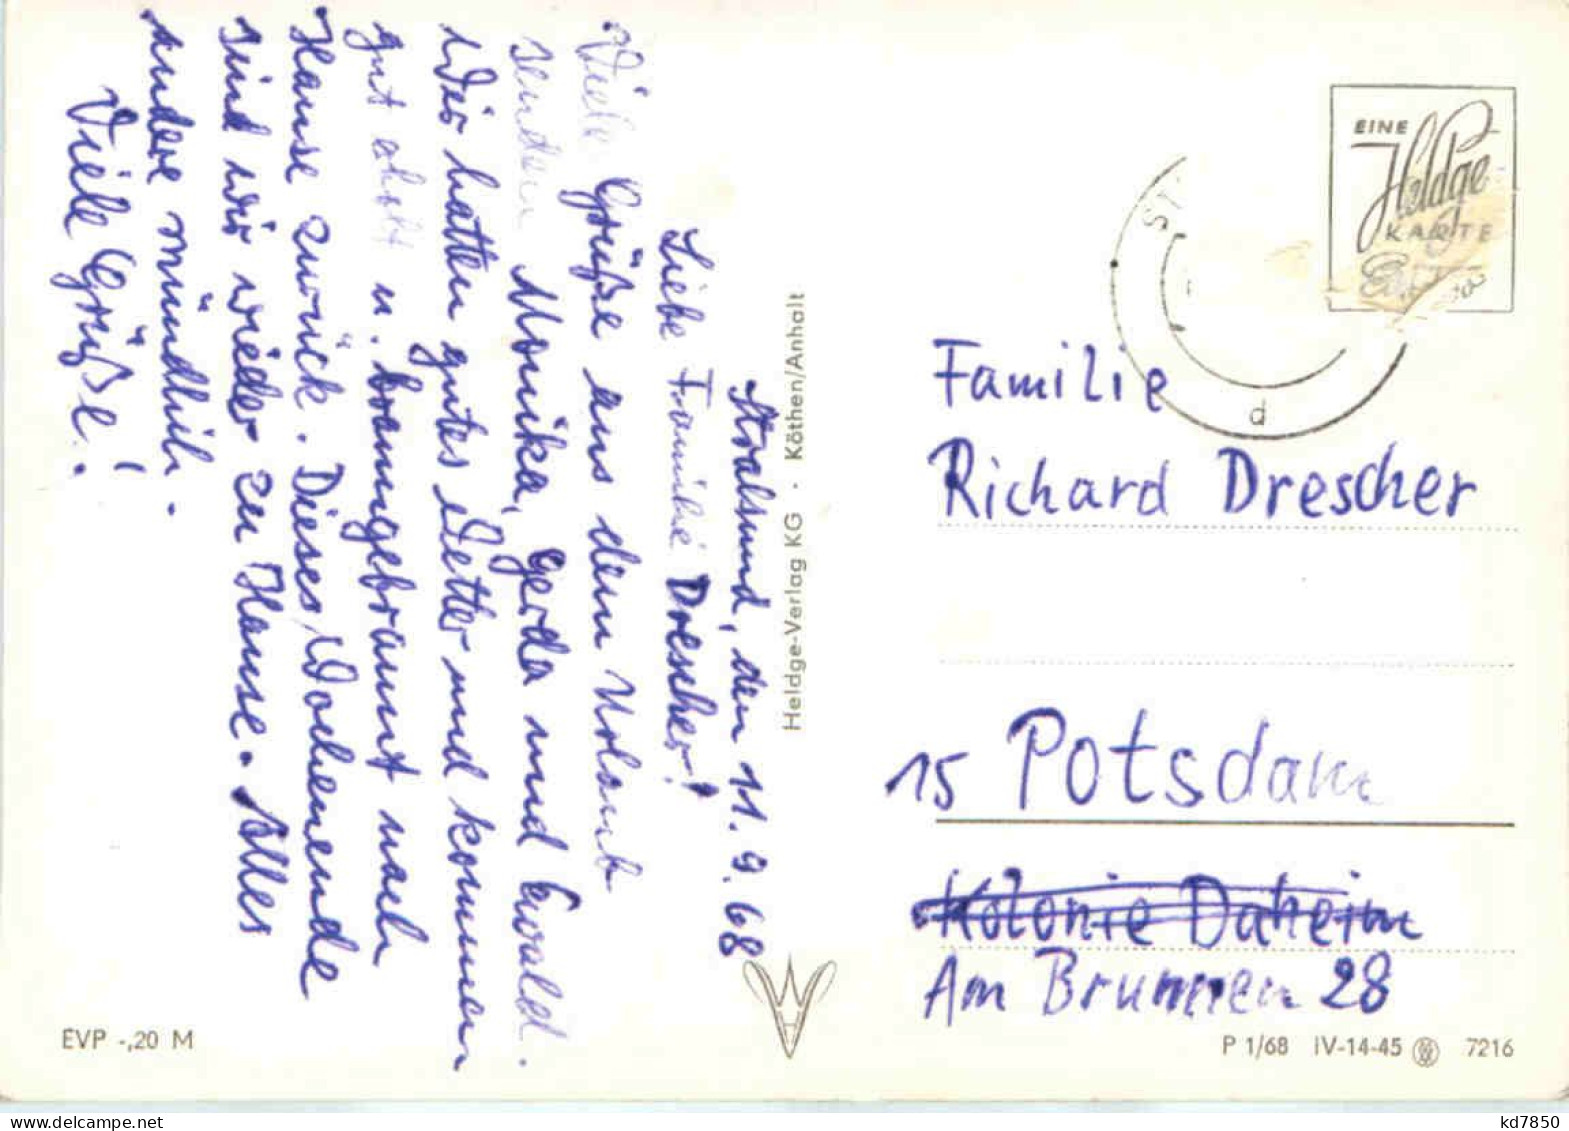 Stralsund, den 11.9.68
Liebe Familie Drescher!
Viele Grüße aus dem Urlaub
senden Monika, Gerda und Ewald.
Wir hatten gutes Wetter und kommen
gut erholt u. braungebrannt nach
Hause zurück. Dieses Wochenende
sind wir wieder zu Hause. Alles
andere mündlich.
Viele Grüße!
EVP -,20 M
Heldge-Verlag KG · Köthen/Anhalt
EINE
Heldge
KARTE
ST
d
Familie
Richard Drescher
15 Potsdam
Kolonie Daheim
Am Brunnen 28
P 1/68 IV-14-45 7216
kd7850